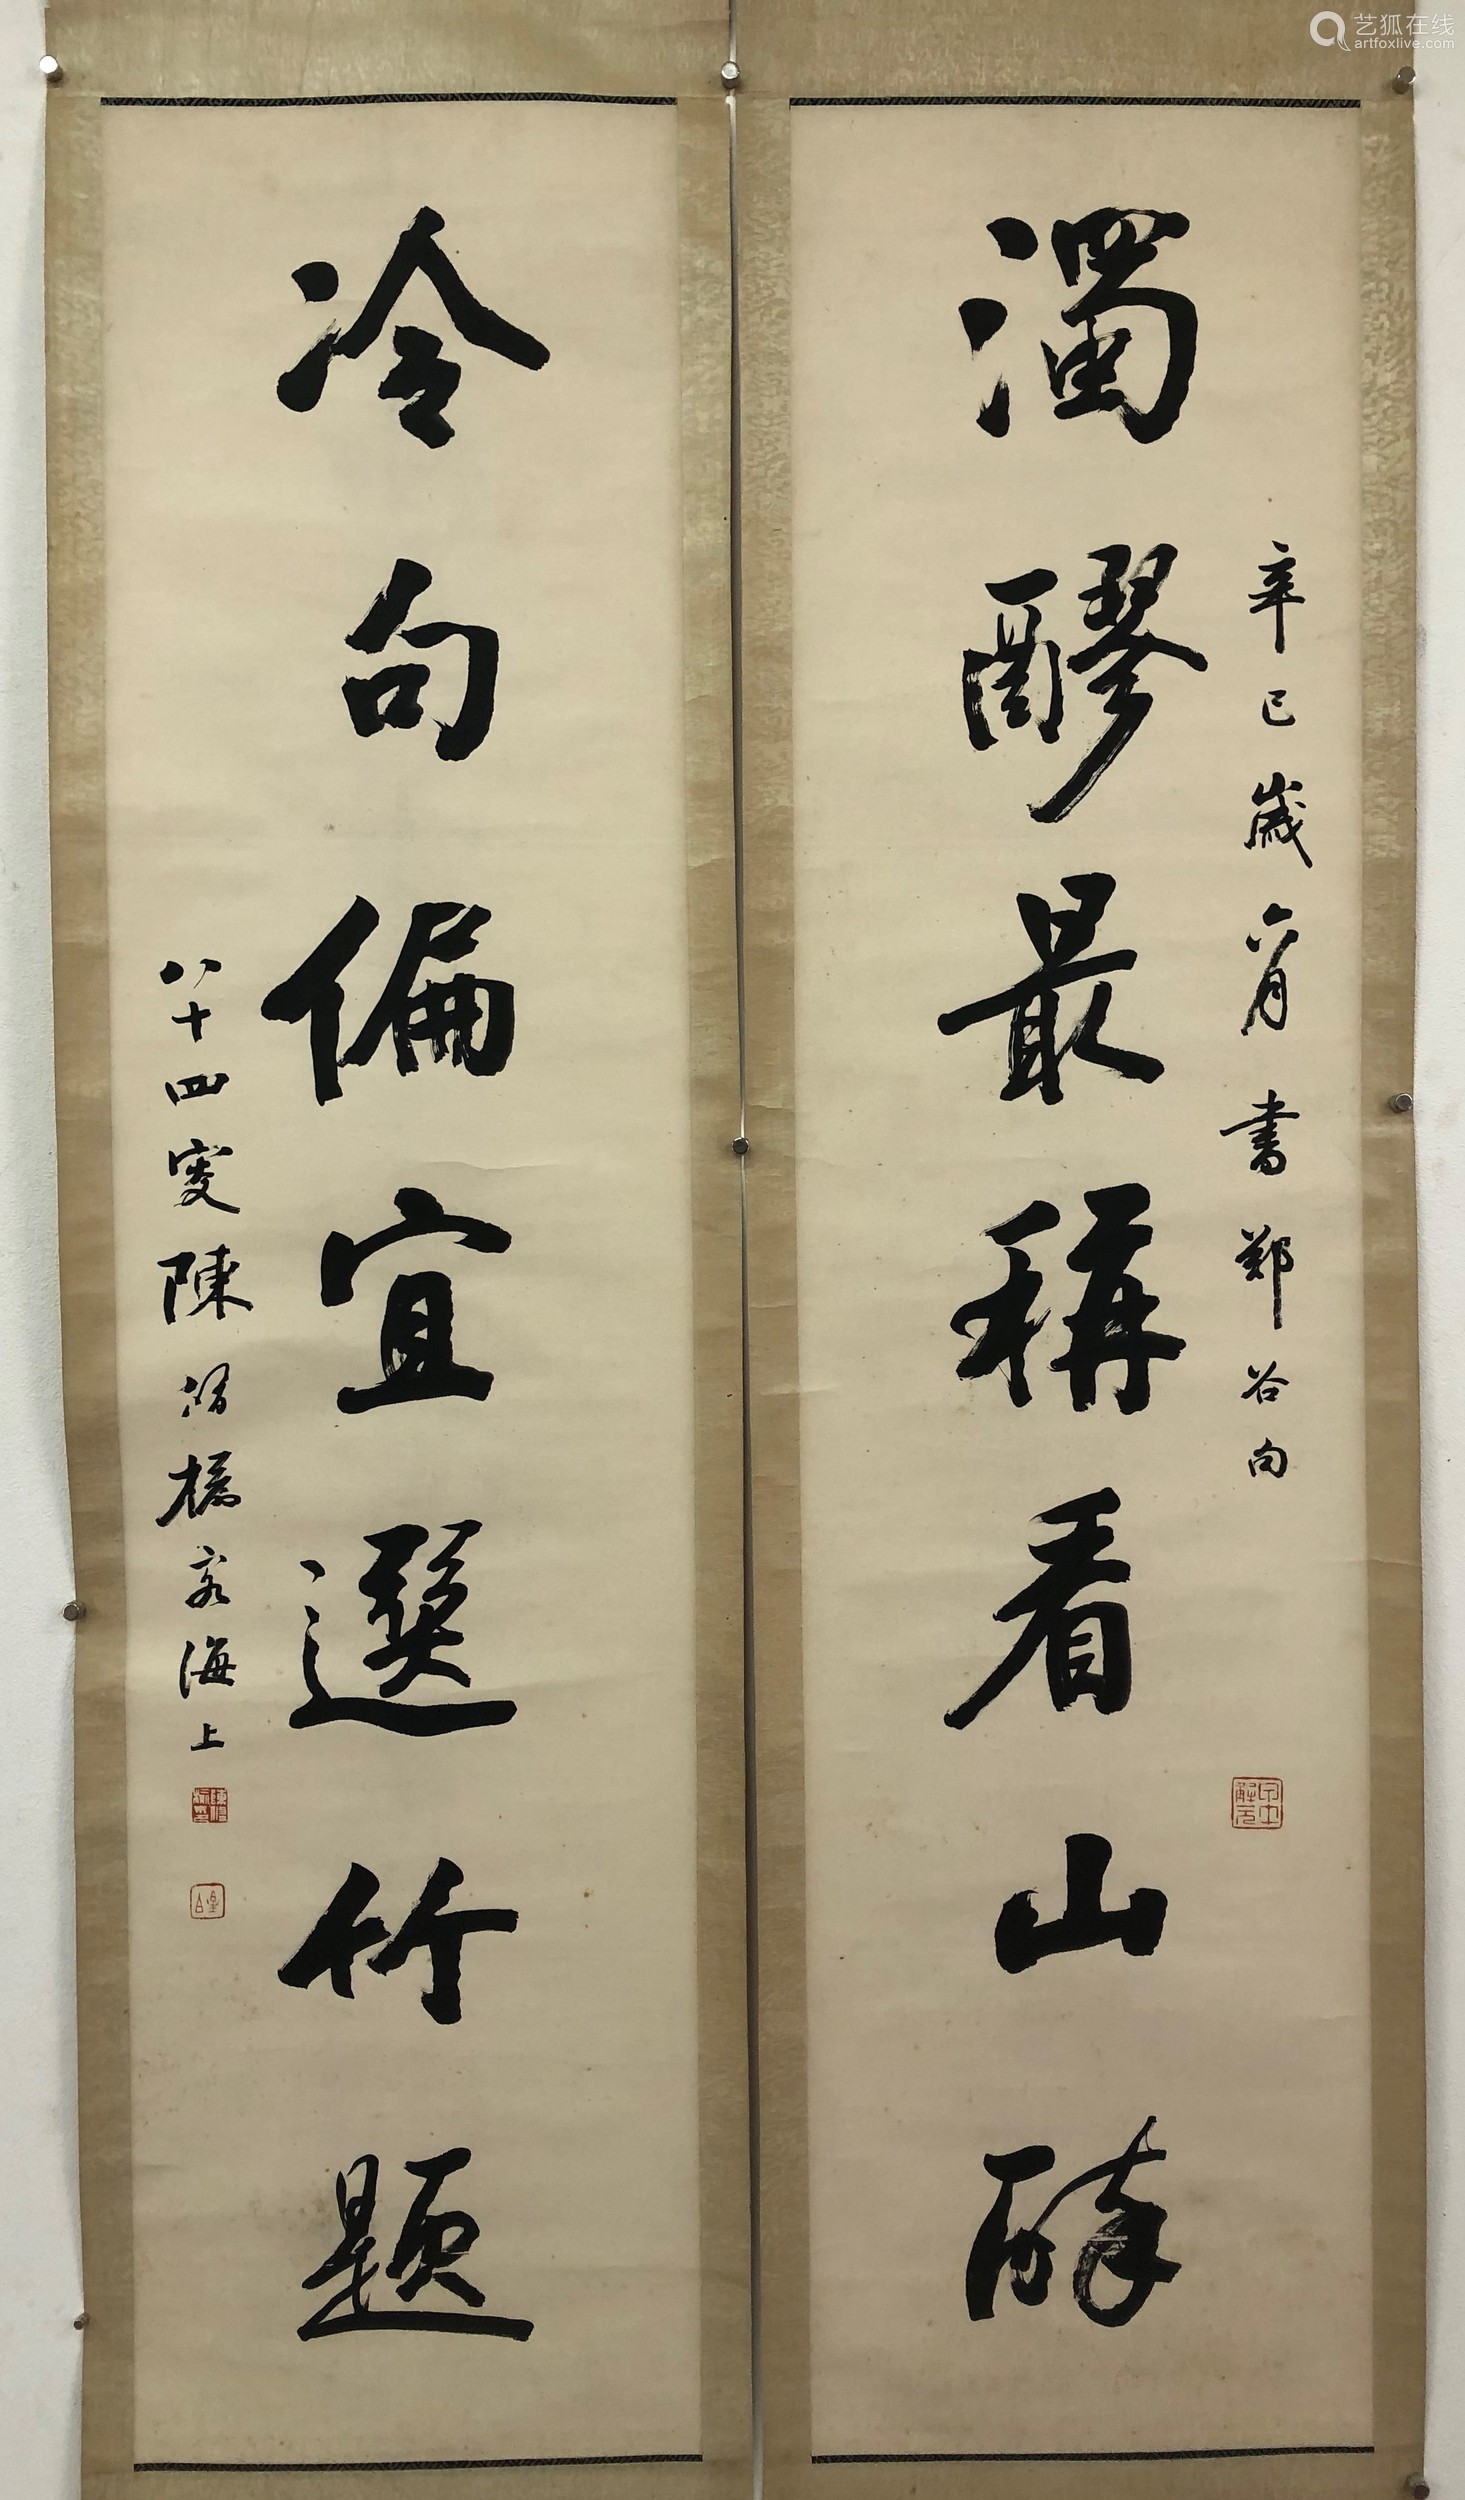 濁醪最稱看山醉
辛巳歲六月書鄭谷句
冷句偏宜選竹題
八十四叟陳
海上
艺狐在线
artfoxlive.com